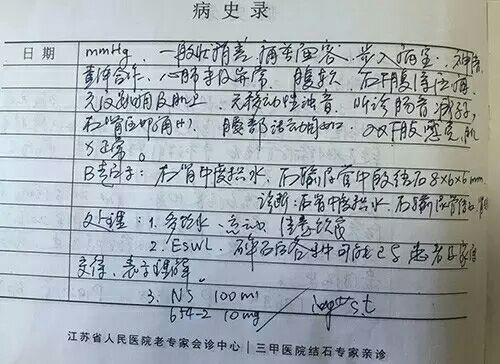 病史录
日期
mmHg，一般状精差，痛苦面容，步入病室，神清
查体合作，心肺未及异常，腹软，右下腹深压痛，
无反跳痛及肌卫，无移动性浊音，听诊肠音
右肾区叩痛(+)，腹部活动自如，双下肢感觉肌
正常。
B超示：右肾中度积水，右输尿管中段结石8×6×6mm
诊断：右肾中度积水，右输尿管结石
处理：1. 多饮水、清素饮食
2. ESWL 碎石后各中可能已与患者及家属
交待，表示理解。
3. NS 100ml
654-2 10mg st
江苏省人民医院老专家会诊中心｜三甲医院结石专家亲诊